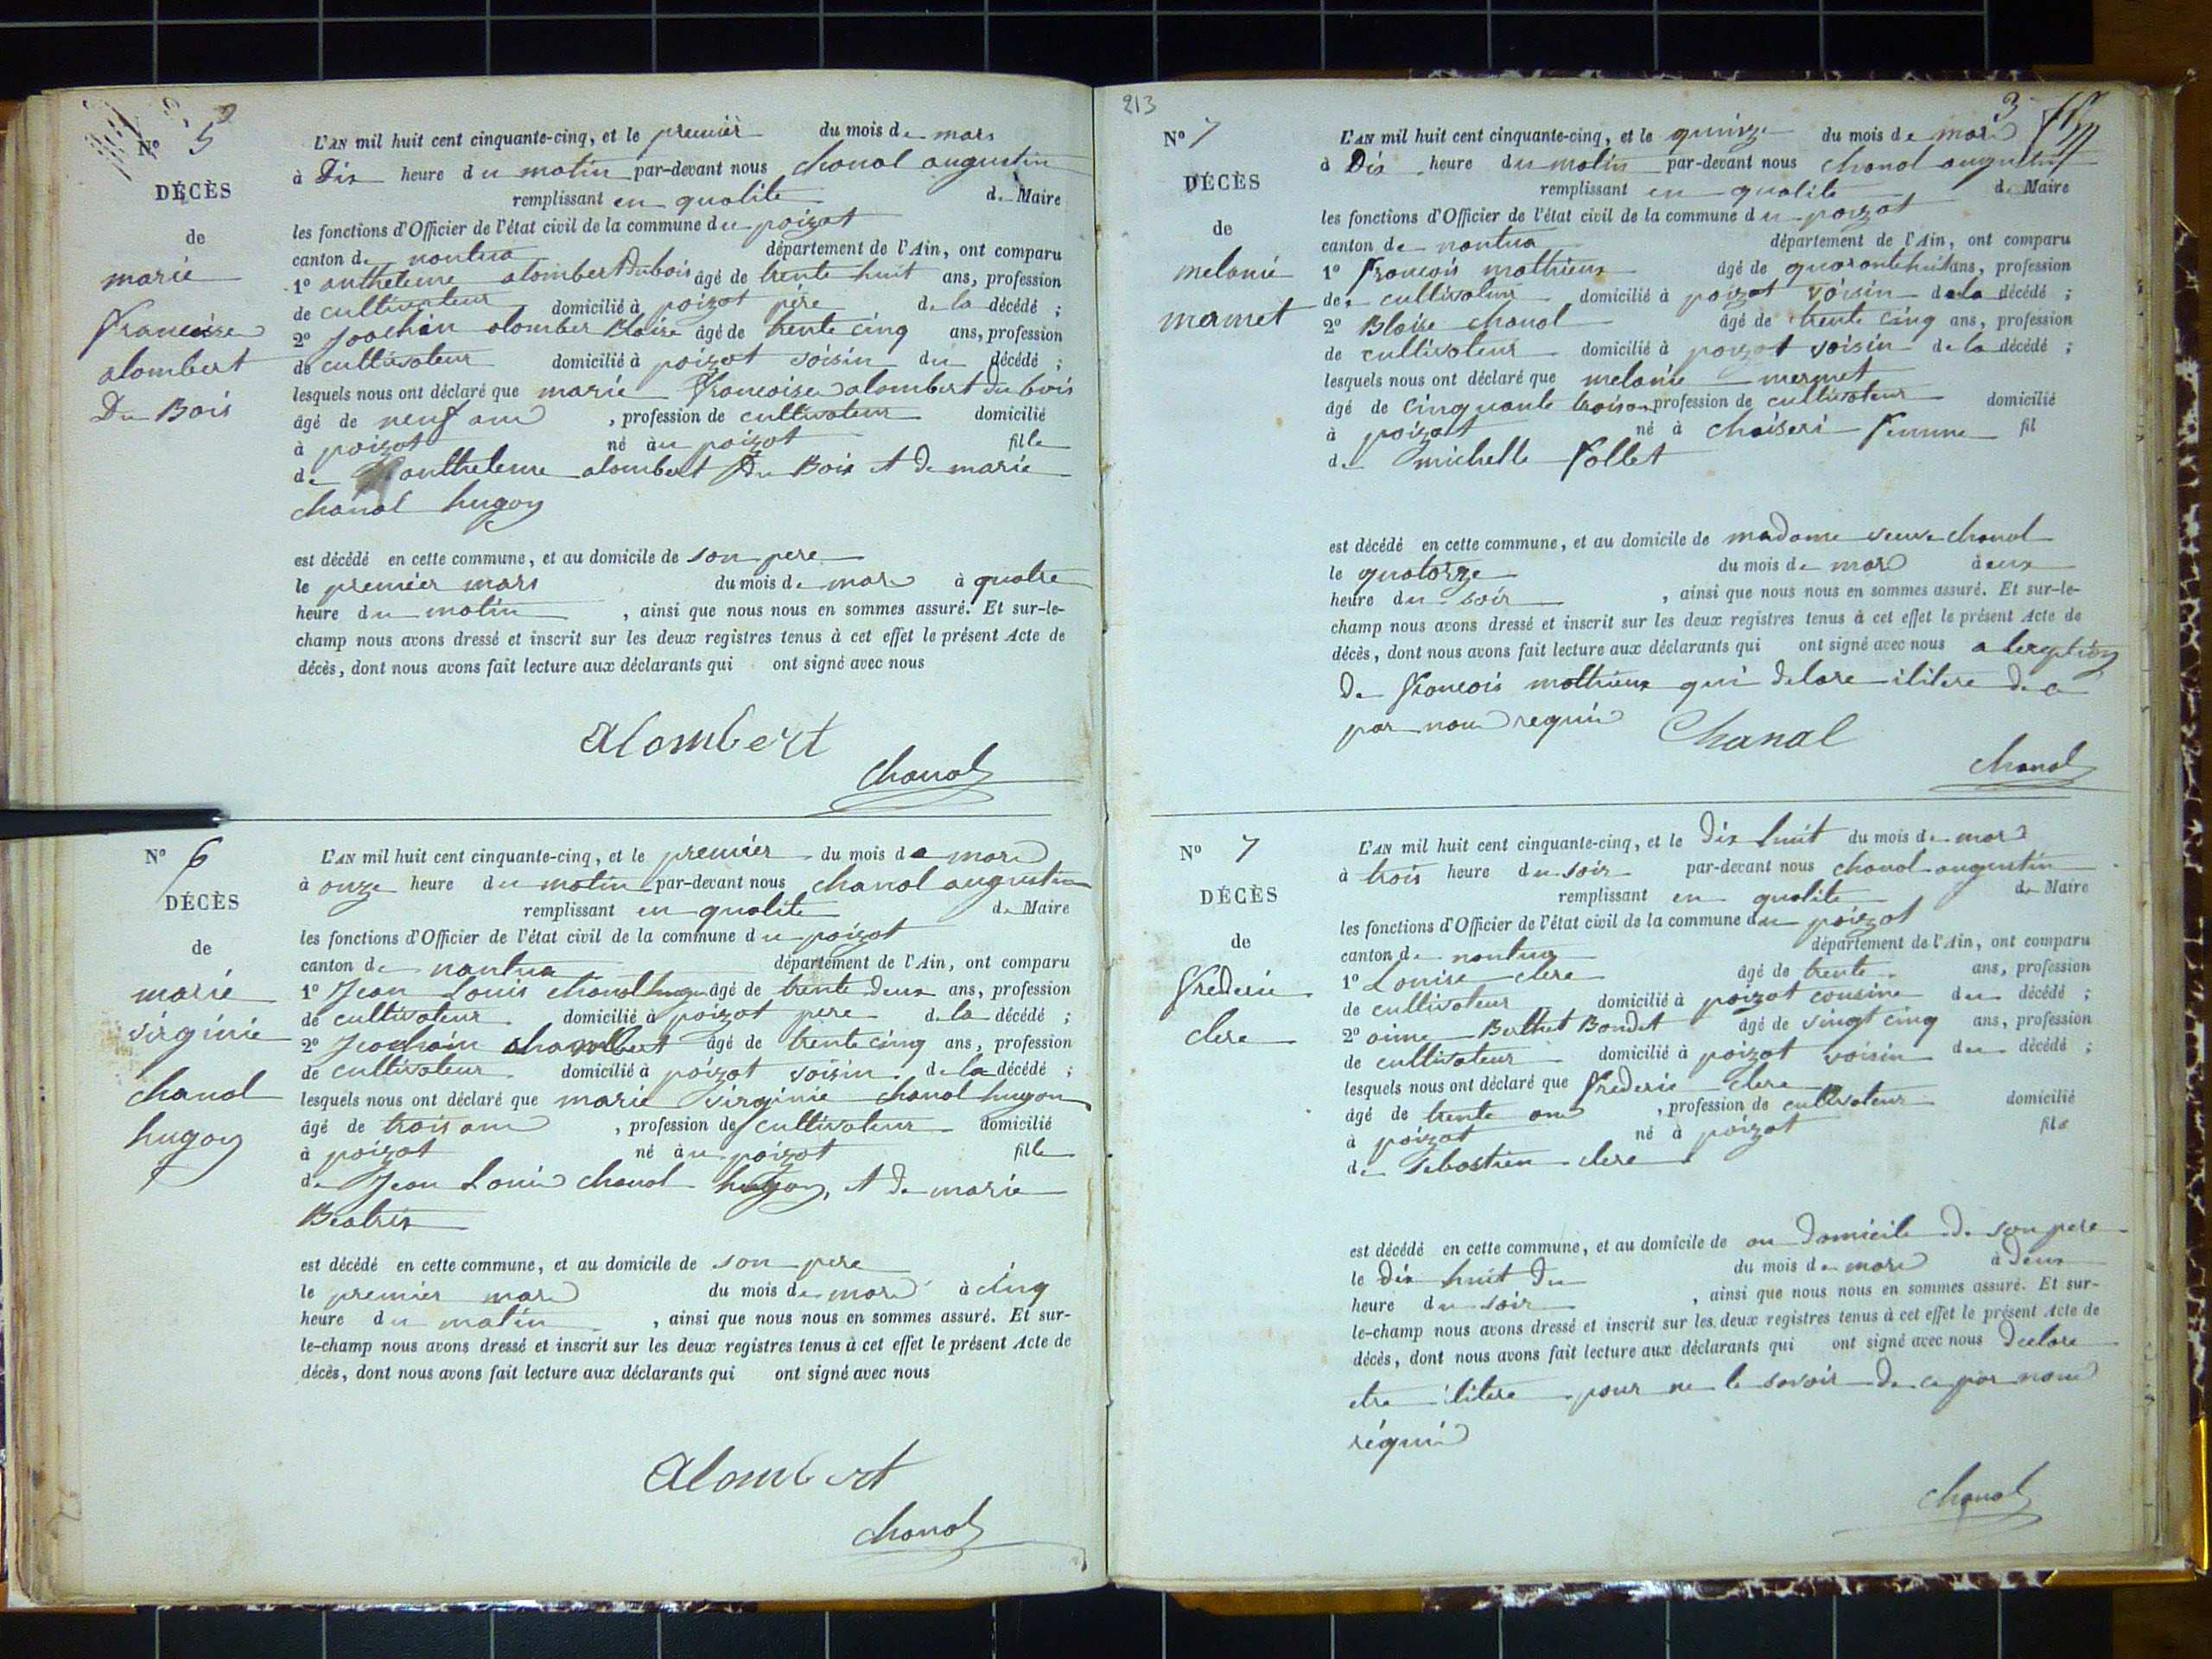 N° 5
DÉCÈS
de
marie
francoise
alombert
Du Bois
L'AN mil huit cent cinquante-cinq, et le premier du mois de mars
à Dix heure du matin par-devant nous chanal augustin
remplissant en qualite de Maire
les fonctions d'Officier de l'état civil de la commune du poizat
canton de nantua département de l'Ain, ont comparu
1° antheleme alombert Dubois âgé de trente huit ans, profession
de cultivateur domicilié à poizat père de la décédé ;
2° Joachin alomber Blaise âgé de trente cinq ans, profession
de cultivateur domicilié à poizat voisin du décédé ;
lesquels nous ont déclaré que marie francoise alombert du bois
âgé de neuf ans , profession de cultivateur domicilié
à poizat né àu poizat fille
de antheleme alombert Du Bois et de marie
chanal hugon
est décédé en cette commune, et au domicile de son pere
le premier mars du mois de mars à quatre
heure du matin , ainsi que nous nous en sommes assuré. Et sur-le-
champ nous avons dressé et inscrit sur les deux registres tenus à cet effet le présent Acte de
décès, dont nous avons fait lecture aux déclarants qui ont signé avec nous
Alombert
chanal
N° 6
DÉCÈS
de
marie
virginie
chanal
hugon
L'AN mil huit cent cinquante-cinq, et le premier du mois de mars
à onze heure du matin par-devant nous chanal augustin
remplissant en qualite de Maire
les fonctions d'Officier de l'état civil de la commune du poizat
canton de nantua département de l'Ain, ont comparu
1° Jean Louis chanal hugon âgé de trente deux ans, profession
de cultivateur domicilié à poizat pere de la décédé ;
2° Joachain âgé de trente cinq ans, profession
de cultivateur domicilié à poizat voisin de la décédé ;
lesquels nous ont déclaré que marie virginie chanal hugon
âgé de trois ans , profession de cultivateur domicilié
à poizat né àu poizat fille
de Jean Louis chanal hugon, et de marie
Beatrix
est décédé en cette commune, et au domicile de son pere
le premier mars du mois de mars à cinq
heure du matin , ainsi que nous nous en sommes assuré. Et sur-
le-champ nous avons dressé et inscrit sur les deux registres tenus à cet effet le présent Acte de
décès, dont nous avons fait lecture aux déclarants qui ont signé avec nous
Alombert
chanal
213
3
N° 7
DÉCÈS
de
melanie
mermet
L'AN mil huit cent cinquante-cinq, et le quinze du mois de mars
à Dix heure du matin par-devant nous chanal augustin
remplissant en qualite de Maire
les fonctions d'Officier de l'état civil de la commune du poizat
canton de nantua département de l'Ain, ont comparu
1° francois mathieux âgé de quarante huit ans, profession
de cultivateur domicilié à poizat voisin de la décédé ;
2° Blaise chanal âgé de trente cinq ans, profession
de cultivateur domicilié à poizat voisin de la décédé ;
lesquels nous ont déclaré que melanie mermet
âgé de cinquante trois ans profession de cultivateur domicilié
à poizat né à chaiseri femme fil
de michelle follet
est décédé en cette commune, et au domicile de madame veuve chanal
le quatorze du mois de mars à eux
heure du soir , ainsi que nous nous en sommes assuré. Et sur-le-
champ nous avons dressé et inscrit sur les deux registres tenus à cet effet le présent Acte de
décès, dont nous avons fait lecture aux déclarants qui ont signé avec nous a lexeption
de francois mathieux qui delare ilitere de ce
par nous requis
Chanal
chanal
N° 7
DÉCÈS
de
frederic
clerc
L'AN mil huit cent cinquante-cinq, et le Dix huit du mois de mars
à trois heure du soir par-devant nous chanal augustin
remplissant en qualite de Maire
les fonctions d'Officier de l'état civil de la commune du poizat
canton de nantua département de l'Ain, ont comparu
1° Louise clerc âgé de trente ans, profession
de cultivateur domicilié à poizat cousine du décédé ;
2° aime Berthet Bondet âgé de vingt cinq ans, profession
de cultivateur domicilié à poizat voisin du décédé ;
lesquels nous ont déclaré que frederic clerc
âgé de trente ans , profession de cultivateur domicilié
à poizat né à poizat fils
de Sebastien clerc
est décédé en cette commune, et au domicile de au domicile de son pere
le dix huit du du mois de mars à deux
heure du soir , ainsi que nous nous en sommes assuré. Et sur-
le-champ nous avons dressé et inscrit sur les deux registres tenus à cet effet le présent Acte de
décès, dont nous avons fait lecture aux déclarants qui ont signé avec nous declare
etre ilitere pour ne le savoir de ce par nous
réquis
chanal